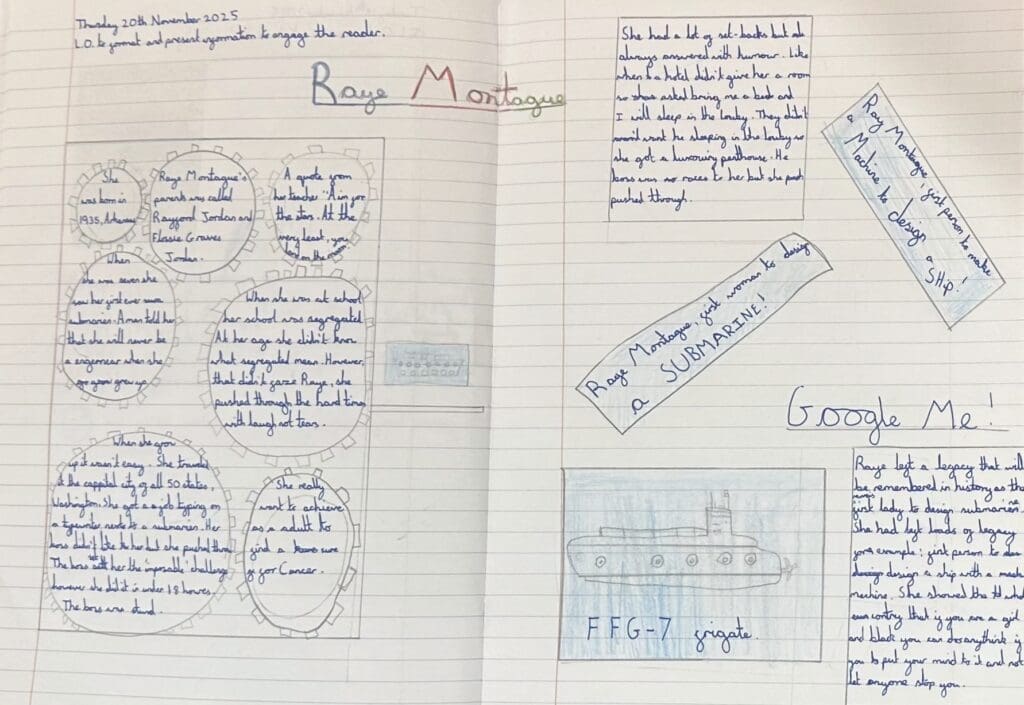 Thursday 20th November 2025
L.O. to format and present information to engage the reader.
Raye Montague
She
was born in
1935, Arkansas
Raye Montague's
parents was called
Rayford Jordan and
Flossie Graves
Jordan.
A quote from
her teacher "Aim for
the stars. At the
very least, you
land on the moon
When
she was seven she
saw her first ever
submarien. A man told her
that she will never be
a engernear when she
grew up
When she was at school
her school was segregated
At her age she didn't know
what segregated mean. However,
that didn't faze Raye, she
pushed through the hard time
with laugh not tears.
When she grow
up it wasn't easy. She traveled
to the cappital city of all 50 states,
Washington. She got a job typing on
a typewriter next to a submarien. Her
boss didn't like her but she pushed throu
The boss set her the imposible challenge
however she did it in under 18 howres.
The boss was stund.
She really
want to achieve
as a adult to
find a sure
for Cancer.
She had a lot of set-backs but she
always answered with humour. Like
when a hotel didn't give her a room
so she asked bring me a bed and
I will sleep in the louby. They didn't
want her sleeping in the louby so
she got a luxouiry penthouse. He
boss was so races to her but she push
pushed through.
Ray Montague, first person to make
a Machine to design a
SHip!
Raye Montague, first woman to design
a SUBMARINE!
Google Me!
FFG-7 frigate.
Raye left a legacy that will
be remembered in history as the
first lady to design submarien.
She had left loads of legacy
fore example: first person to
design a ship with a
machine. She showed the
contry that if you are a girl
and black you can do anythink if
you to put your mind to it and not
let anyone stop you.